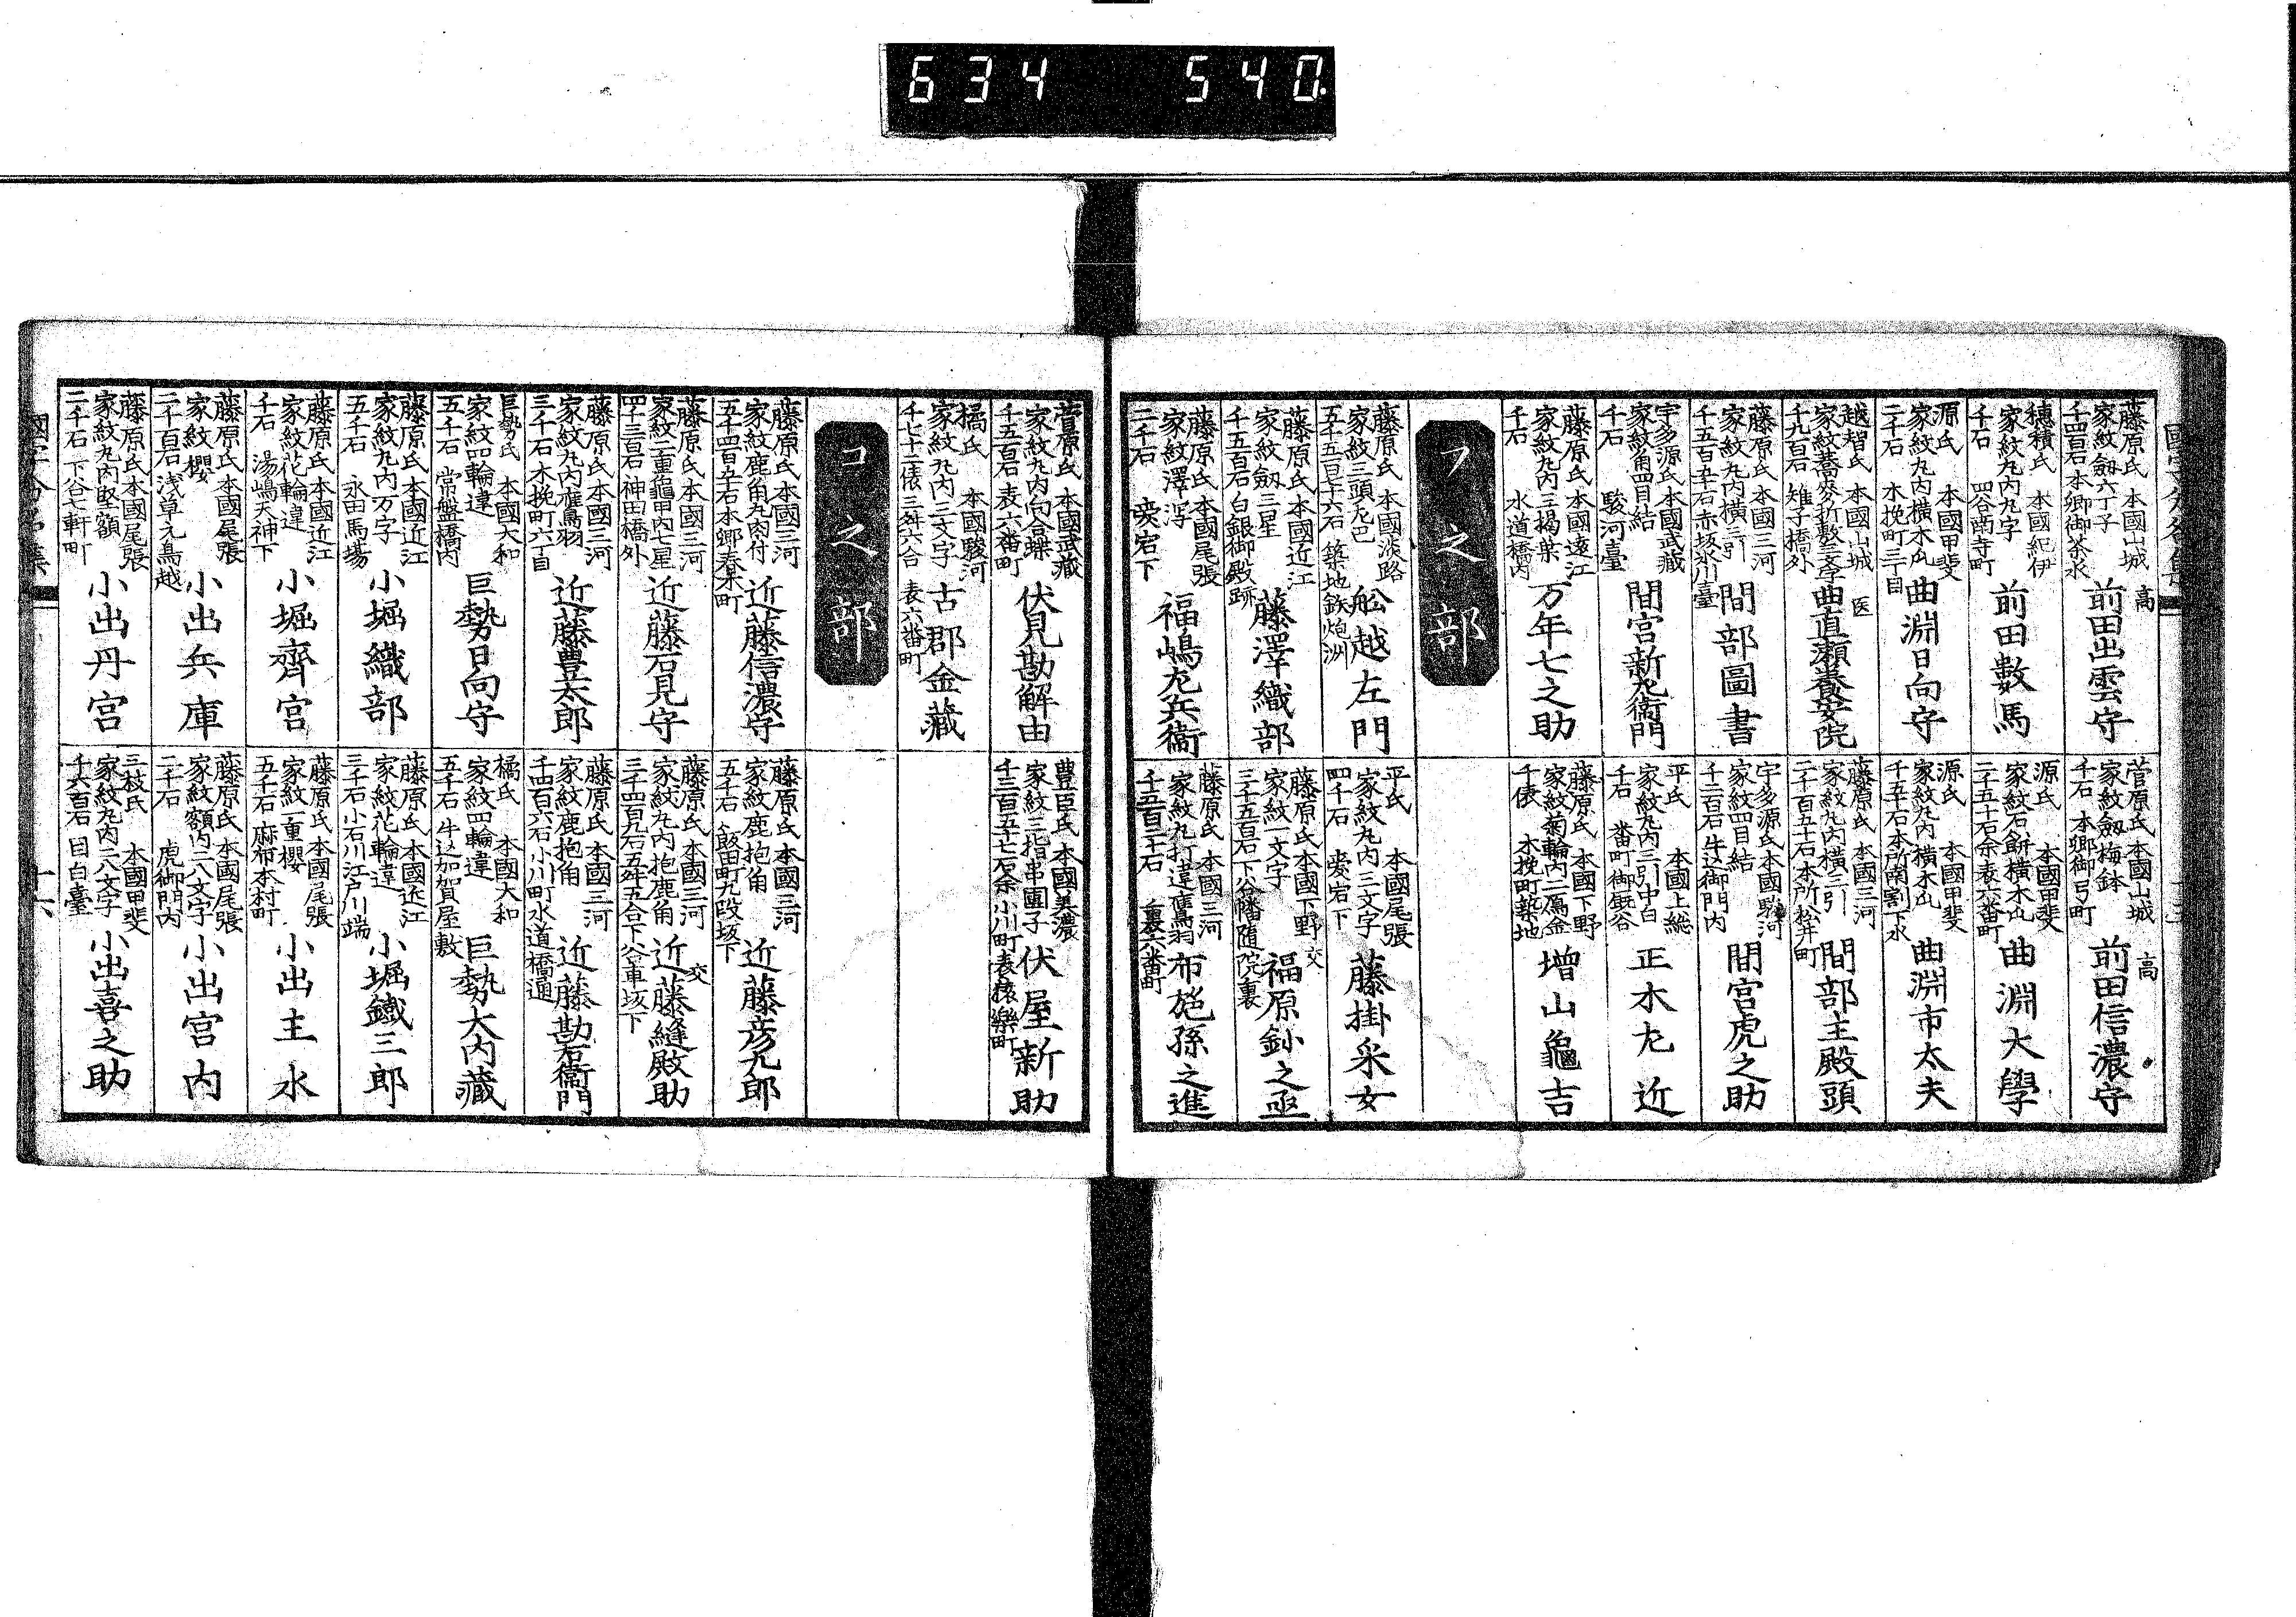 634 540
藤原氏 本國山城
家紋劔六丁子
千四百石 本郷御茶水
高
前田出雲守
穗積氏 本國紀伊
家紋丸内九字
千石 四谷西寺町
前田數馬
源氏 本國甲斐
家紋丸内横木瓜
二千石 木挽町三丁目
曲淵日向守
越智氏 本國山城
千九百石 雉子橋外
医
曲直瀬養安院
藤原氏 本國三河
家紋丸内横三引
千五百五十石 赤坂氷川臺
間部圖書
宇多源氏 本國武藏
家紋角四目結
千石 駿河臺
間宮新九衛門
藤原氏 本國遠江
家紋丸内三揭葉
千石 水道橋内
万年七之助
菅原氏 本國山城
家紋劔梅鉢
千石 本郷御弓町
高
前田信濃守
源氏 本國甲斐
家紋石餅横木瓜
二千五十石余 表六番町
曲淵大學
源氏 本國甲斐
家紋丸内横木瓜
千五十石 本所南割下水
曲淵市太夫
藤原氏 本國三河
家紋丸内横三引
二千百五十石 本所松井町
間部主殿頭
宇多源氏 本國駿河
家紋四目結
千二百石 牛込御門内
間宮虎之助
平氏 本國上総
家紋丸内三引中白
千石 番町御厩谷
正木左近
藤原氏 本國下野
家紋菊輪内二雁金
千俵 木挽町築地
増山龜吉
フ之部
藤原氏 本國淡路
家紋三頭九巴
五千五百三十六石 築地鉄炮洲
舩越左門
藤原氏 本國近江
家紋劔三星
千五百石 白銀御殿跡
藤澤織部
藤原氏 本國尾張
家紋澤瀉
二千石 愛宕下
福嶋左兵衞
平氏 本國尾張
家紋丸内三文字
四千石 愛宕下
藤掛采女
藤原氏 本國下野
家紋一文字
三千五百石 下谷幡随院裏
交
福原釛之亟
藤原氏 本國三河
家紋丸打違鷹羽
千五百三十石 裏六番町
布施孫之進
菅原氏 本國武藏
家紋丸内向合蝶
千五百石 表六番町
伏見勘解由
橘氏 本國駿河
家紋丸内三文字
千七十二俵三舛六合 表六番町
古郡金藏
豊臣氏 本國美濃
家紋三指串團子
千三百五十七石余 小川町表猿樂町
伏屋新助
コ之部
藤原氏 本國三河
家紋鹿角丸肉付
五千四百五十石 本郷春木町
近藤信濃守
藤原氏 本國三河
家紋二重龜甲内七星
四千三百石 神田橋外
近藤石見守
藤原氏 本國三河
家紋丸内鷹羽
三千石 木挽町六丁目
近藤豊太郎
巨勢氏 本國大和
家紋四輪違
五千石 常盤橋内
巨勢日向守
藤原氏 本國近江
家紋丸内万字
五千石 永田馬場
小堀織部
藤原氏 本國近江
家紋花輪違
千石 湯嶋天神下
小堀齊宮
藤原氏 本國尾張
家紋櫻
二千百石 浅草元鳥越
小出兵庫
藤原氏 本國尾張
家紋丸内竪額
二千石 下谷七軒町
小出丹宮
藤原氏 本國三河
家紋鹿抱角
五千石 飯田町九段坂下
近藤彦九郎
藤原氏 本國三河
家紋丸内抱鹿角
三千四百九石五舛五合 下谷車坂下
交
近藤縫殿助
藤原氏 本國三河
家紋鹿抱角
千四百六石 小川町水道橋通
近藤勘右衞門
橘氏 本國大和
家紋四輪違
五千石 牛込加賀屋敷
巨勢大内藏
藤原氏 本國近江
家紋花輪違
三千石 小石川江戸川端
小堀鐵三郎
藤原氏 本國尾張
家紋二重櫻
五千石 麻布本村町
小出主水
藤原氏 本國尾張
家紋額内二八文字
二千石 虎御門内
小出宮内
三枝氏 本國甲斐
家紋丸内二八文字
千六百石 目白臺
小出喜之助
十六